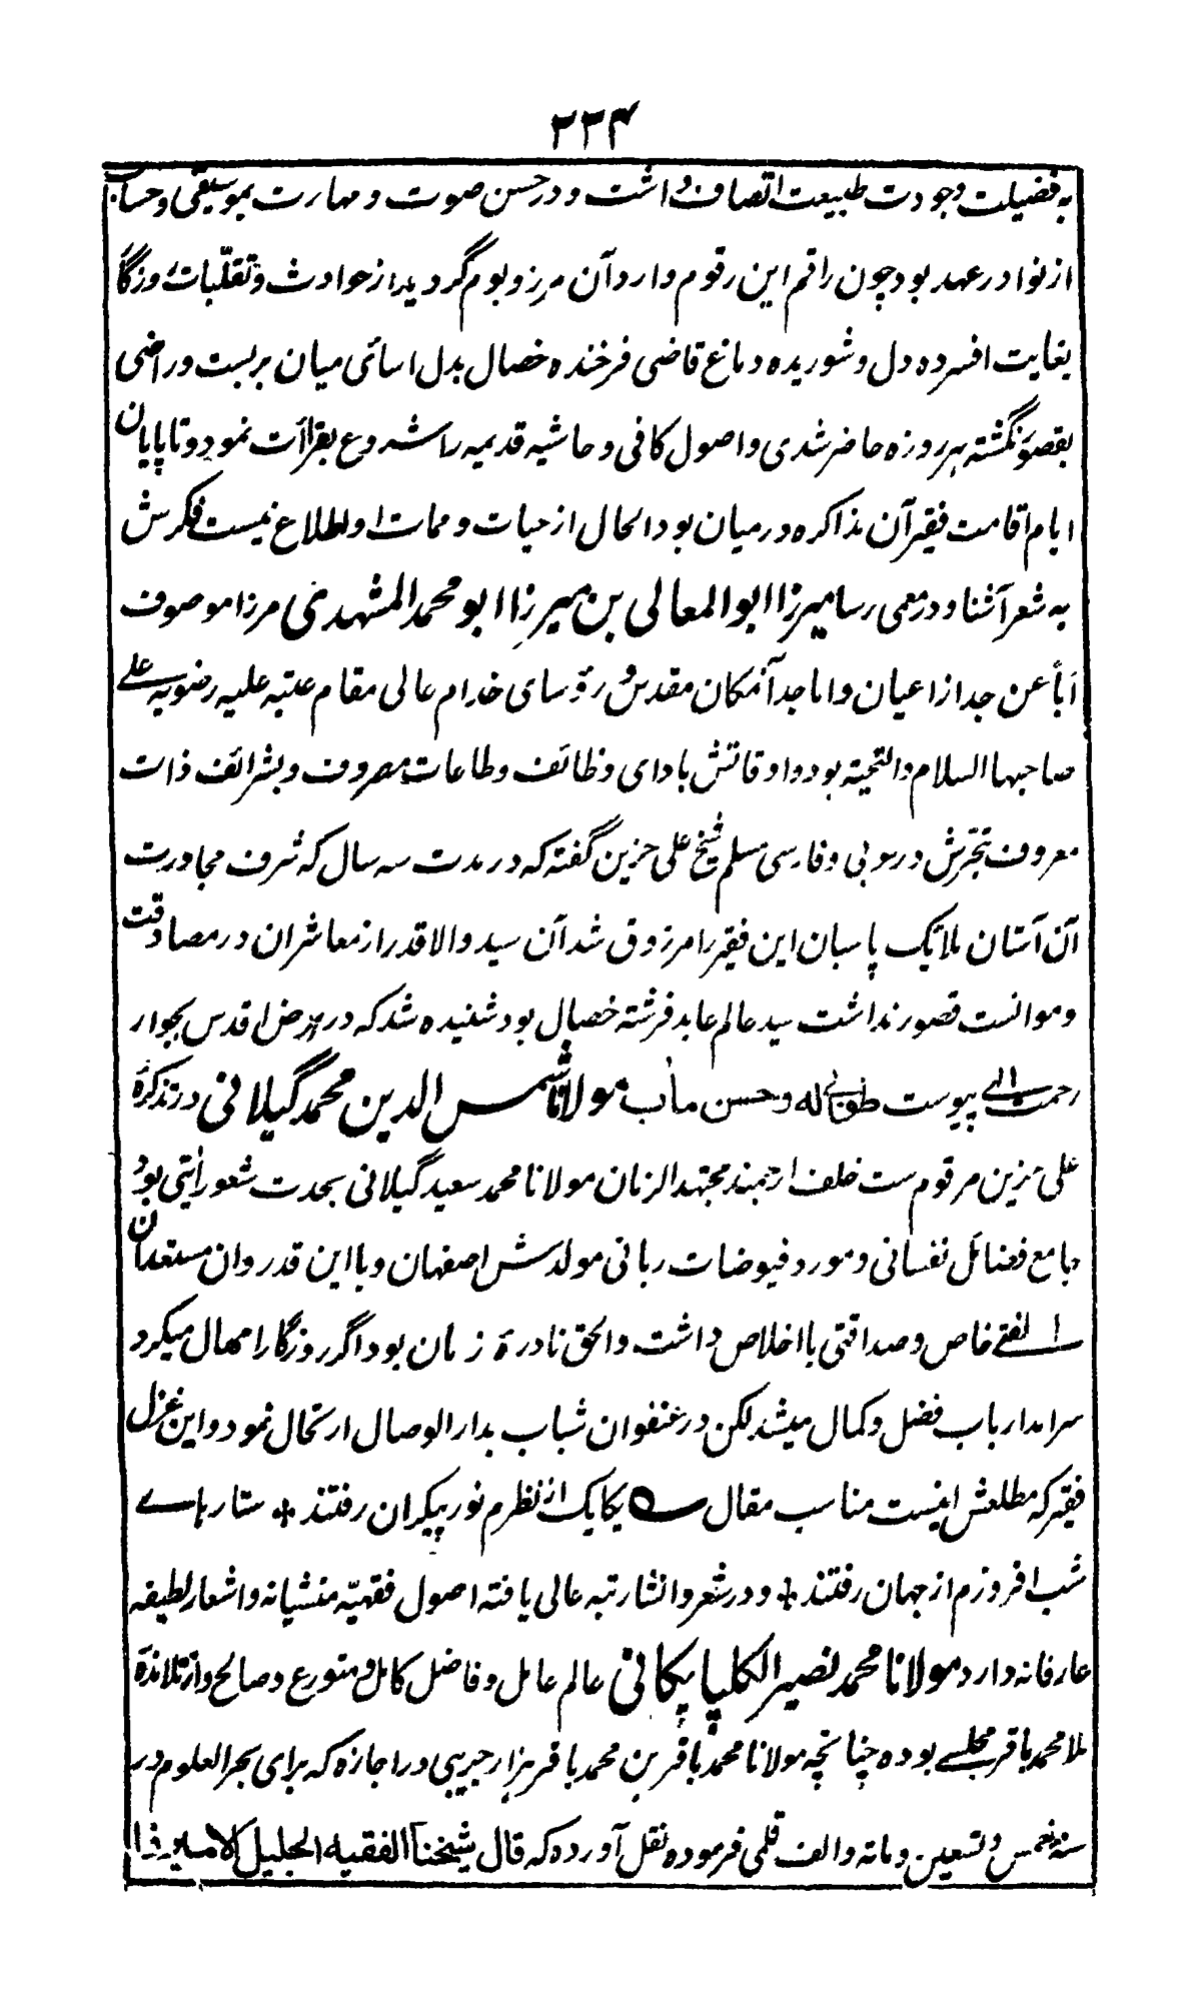 ۲۳۴
به فضیلت وجودت طبیعت اتصاف داشت و در حسن صوت و مهارت بموسیقی و حساب
از نوادر عهد بود چون راقم این رقوم وارد آن مرز و بوم گردید از حوادث و تقلّبات روزگار
بغایت افسرده دل و شوریده دماغ قاضی فرخنده خصال بدل اسائی میان بربست و راضی
بقصور نگشته هر روزه حاضر شدی و اصول کافی و حاشیه قدیمه را شروع بقرأت نمود و تا پایان
ایام اقامت فقیر آن مذاکره در میان بود الحال از حیات و ممات او اطلاع نیست فکرش
به شعر آشنا و در معمی رسا میرزا ابوالمعالی بن میرزا ابو محمد المشهدی مرزا موصوف
اباً عن جد از اعیان و اماجد آنمکان مقدس و رؤسای خدام عالی مقام عتبه علیه رضویه علی
صاحبها السلام والتحیته بود و اوقاتش بادای وظائف و طاعات مصروف و بشرائف ذات
معروف تبحّرش در عربی و فارسی مسلم شیخ علی حزین گفته که در مدت سه سال که شرف مجاورت
آن آستان ملایک پاسبان این فقیر را مرزوق شد آن سید والاقدر از معاشران در مصادقت
و موانست قصور نداشت سید عالم عابد فرشته خصال بود شنیده شد که در ارض اقدس بجوار
رحمت الهی پیوست طوبی له و حسن مآب مولانا شمس الدین محمد گیلانی در تذکرهٔ
علی حزین مرقوم ست خلف ارجمند مجتهد الزمان مولانا محمد سعید گیلانی بحدت شعور آیتی بود
جامع فضائل نفسانی و مورد فیوضات ربانی مولدش اصفهان و با این قدردان مستعدان
الفتے خاص و صداقتی با اخلاص داشت والحق نادرهٔ زمان بود اگر روزگار امهال میکرد
سرامد ارباب فضل و کمال میشد لکن در عنفوان شباب بدار الوصال ارتحال نمود و این غزل
فقیر که مطلعش اینست مناسب مقال ؎ یکایک از نظرم نور پیکران رفتند + ستارہاے
شب افروزم از جهان رفتند + و در شعر و انشا رتبه عالی یافته اصول فقهیّه منشیانه و اشعار لطیفه
عارفانه دارد مولانا محمد نصیر الکلپایکانی عالم عامل و فاضل کامل و متورع و صالح و از تلامذهٔ
ملا محمد باقر مجلسے بوده چنانچه مولانا محمد باقر بن محمد باقر هزار جریبی در اجازه که برای بحر العلوم در
سنه خمس و تسعین و ماته و الف قلمی فرموده نقل آورده که قال شیخنا الفقیه الجلیل الامیرزا